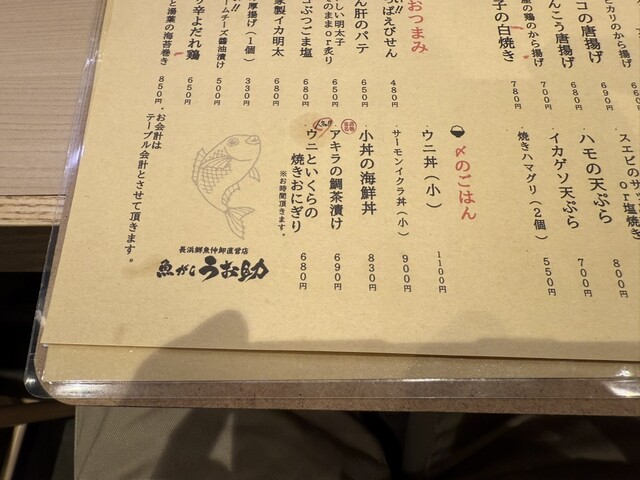 スエビのサッ
or塩焼き
800円
ハモの天ぷら
700円
イカゲソ天ぷら
焼きハマグリ(2個)
550円
ヒカリのから揚げ
コの唐揚げ
680円
んこう唐揚げ
690円
の鶏のから揚げ
700円
子の白焼き
780円
〆のごはん
ウニ丼(小)
1100円
サーモンイクラ丼(小)
900円
小丼の海鮮丼
830円
アキラの鯛茶漬け
690円
人気!!
ウニといくらの
焼きおにぎり
※お時間頂きます。
680円
おつまみ
ぱえびせん
480円
ん肝のパテ
650円
しい明太子
のままor炙り
650円
ぶつごま塩
680円
家製イカ明太
680円
厚揚げ(1個)
330円
ームチーズ醤油漬け
500円
辛よだれ鶏
650円
と湯葉の海苔巻き
850円
お会計は
テーブル会計とさせて頂きます。
長浜鮮魚仲卸直営店
魚がし うお助